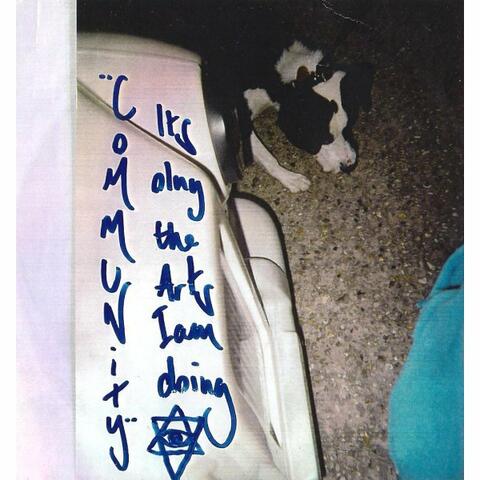 "COMMUNiTY"
Its
olny
the
Arts
I am
doing